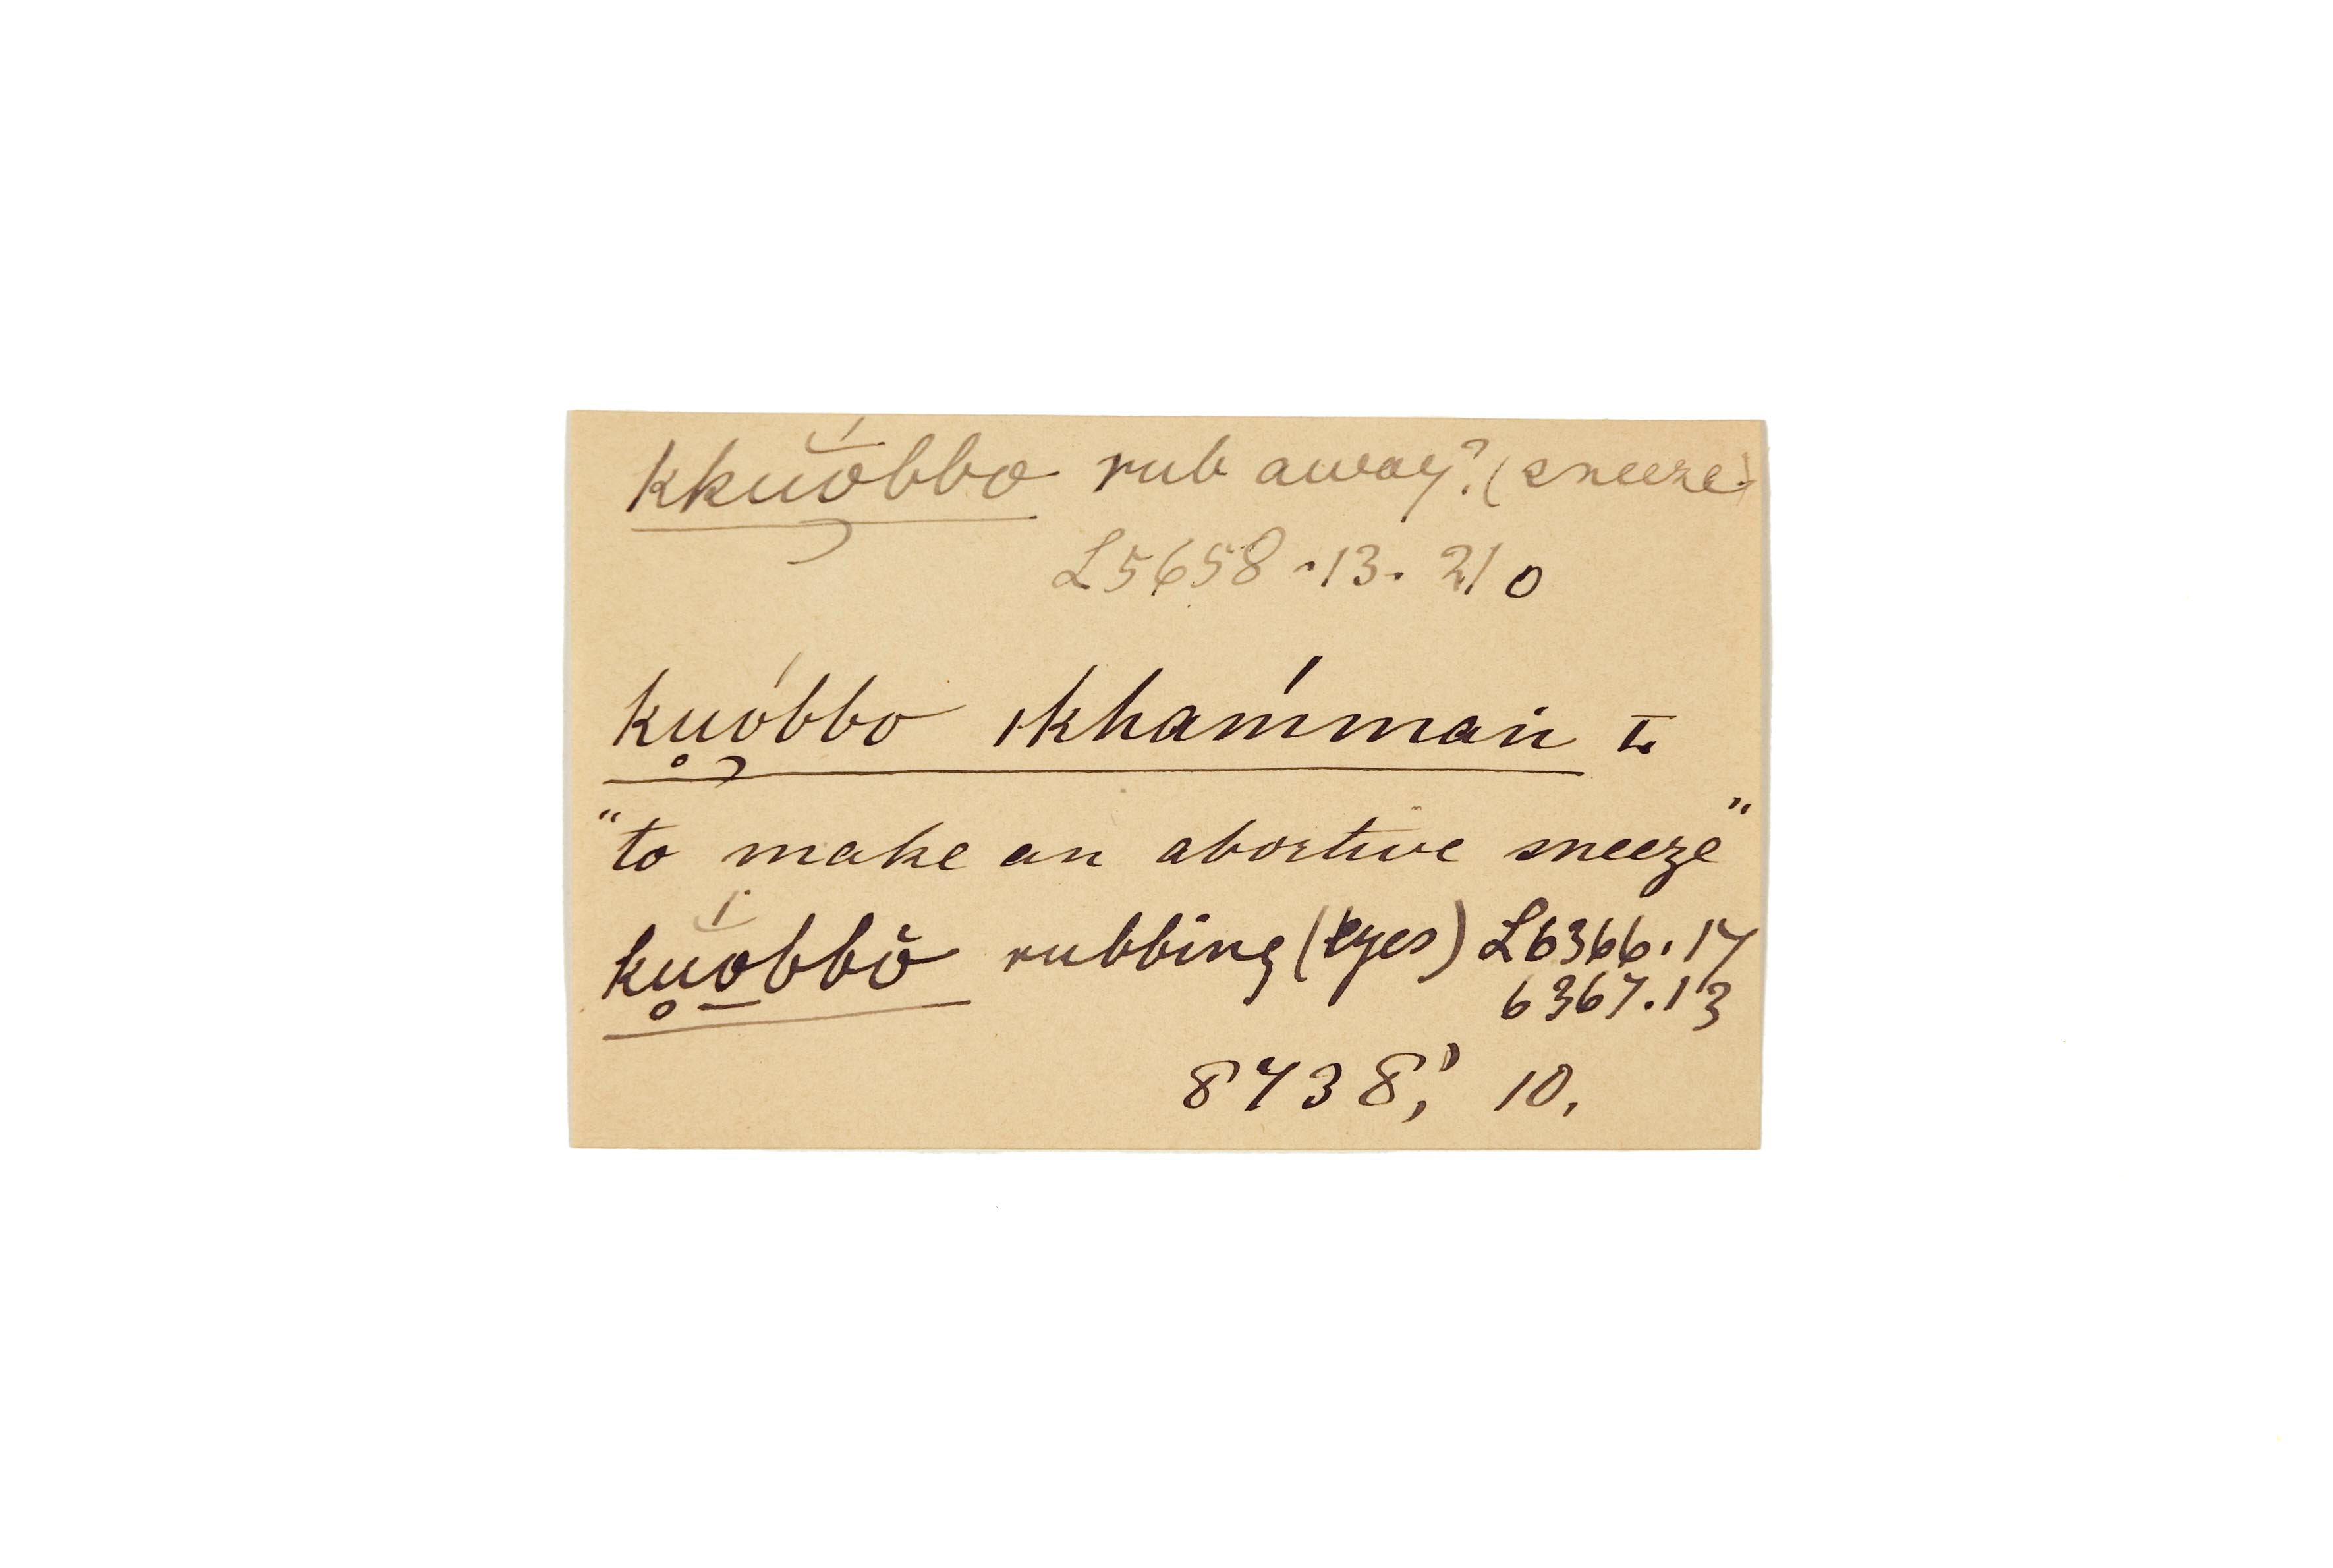 kkŭóbbo rub away? (sneeze)
L5658.13.210
ku̥óbbo ıkhámman I.
"to make an abortive sneeze"
ku̥ŏ́bbŏ rubbing (eyes) L6366.17
6367.13
8738,' 10,